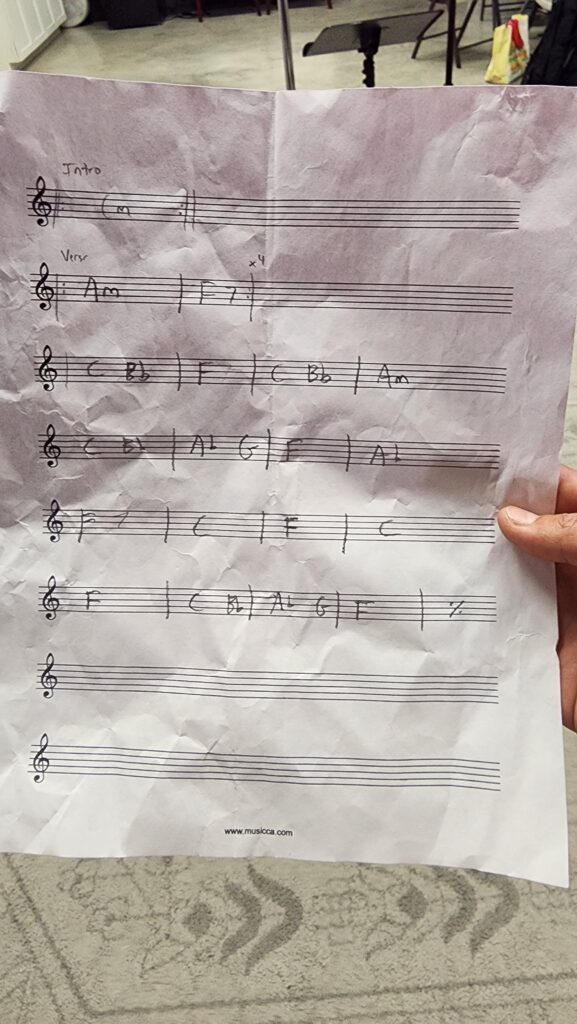 Intro
Cm
Verse x4
Am | F7
C Bb | F | C Bb | Am
C Bb | Ab G | F | Ab
F7 | C | F | C
F | C Bb | Ab G | F | ٪
www.musicca.com